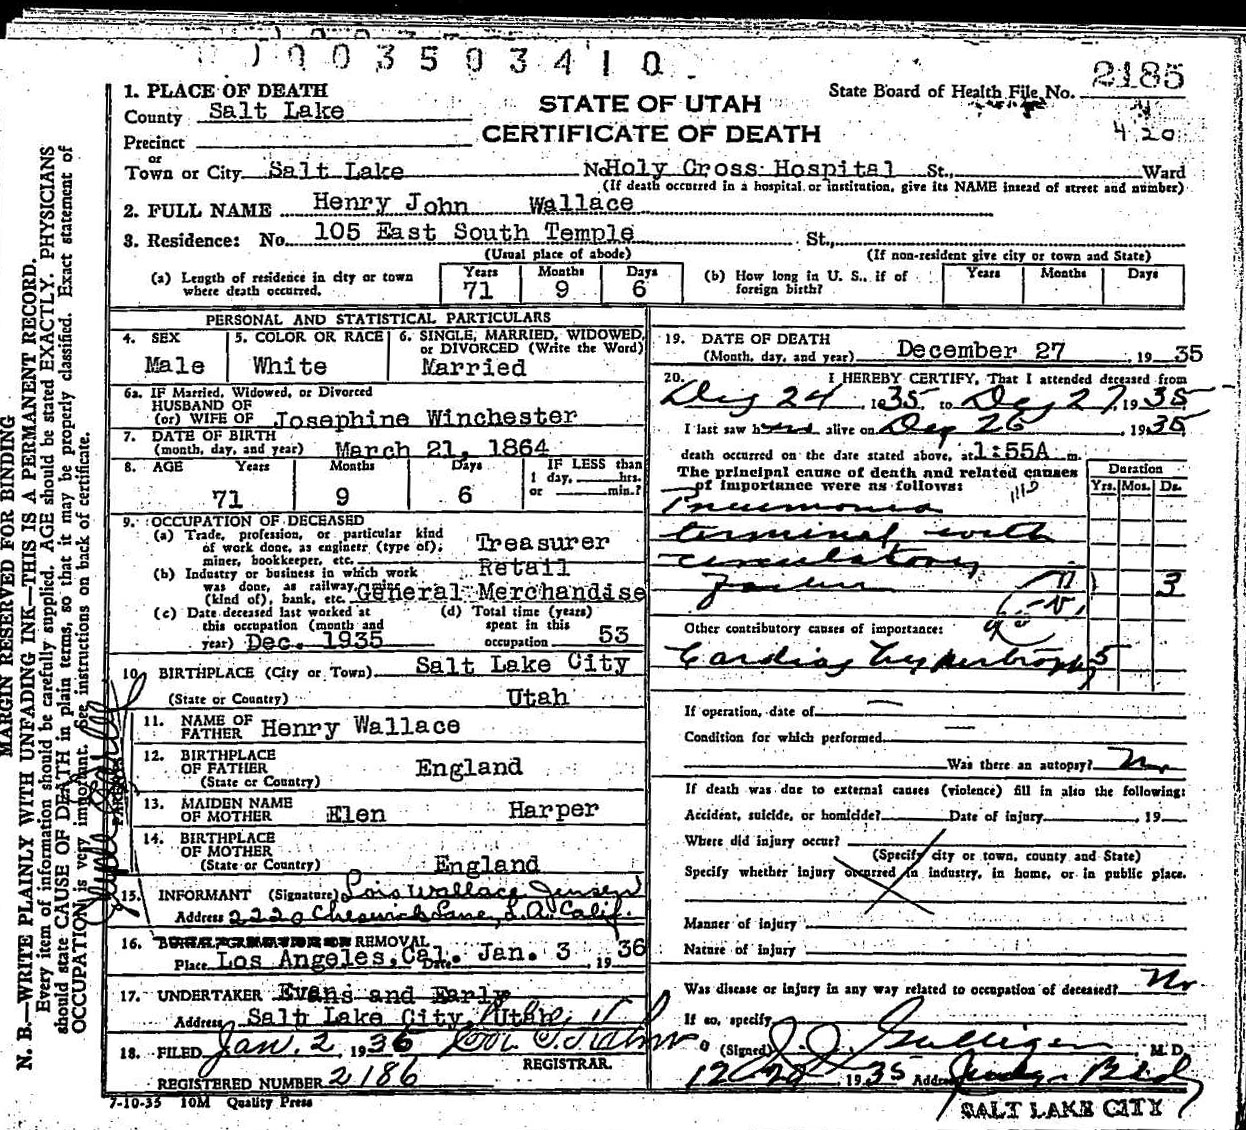 1003503410
2185
1. PLACE OF DEATH
County Salt Lake
STATE OF UTAH
CERTIFICATE OF DEATH
State Board of Health File No.
420
Precinct
or
Town or City Salt Lake No. Holy Cross Hospital St., Ward
(If death occurred in a hospital or institution, give its NAME instead of street and number)
2. FULL NAME Henry John Wallace
3. Residence: No. 105 East South Temple St.,
(Usual place of abode) (If non-resident give city or town and State)
(a) Length of residence in city or town where death occurred. Years 71 Months 9 Days 6
(b) How long in U. S., if of foreign birth? Years Months Days
PERSONAL AND STATISTICAL PARTICULARS
4. SEX Male
5. COLOR OR RACE White
6. SINGLE, MARRIED, WIDOWED, or DIVORCED (Write the Word) Married
6a. IF Married, Widowed, or Divorced
HUSBAND OF
(or) WIFE OF Josephine Winchester
7. DATE OF BIRTH
(month, day, and year) March 21, 1864
8. AGE Years 71 Months 9 Days 6
IF LESS than 1 day, hrs. or min.?
9. OCCUPATION OF DECEASED
(a) Trade, profession, or particular kind of work done, as engineer (type of); miner, bookkeeper, etc. Treasurer
(b) Industry or business in which work was done, as railway (kind of), bank, etc. Retail General Merchandise
(c) Date deceased last worked at this occupation (month and year) Dec. 1935
(d) Total time (years) spent in this occupation 53
10. BIRTHPLACE (City or Town) Salt Lake City
(State or Country) Utah
11. NAME OF FATHER Henry Wallace
12. BIRTHPLACE OF FATHER England
(State or Country)
13. MAIDEN NAME OF MOTHER Elen Harper
14. BIRTHPLACE OF MOTHER
(State or Country) England
15. INFORMANT (Signature) Lois Wallace Jensen
Address 2220 Lane, L.A. Calif.
16. REMOVAL
Place Los Angeles, Cal. Date Jan. 3 1936
17. UNDERTAKER Evans and Early
Address Salt Lake City, Utah
18. FILED Jan. 2, 1936
REGISTRAR.
REGISTERED NUMBER 2186
7-10-35 10M Quality Press
19. DATE OF DEATH
(Month, day, and year) December 27, 1935
20. I HEREBY CERTIFY, That I attended deceased from
24, 1935 to 27, 1935
I last saw h alive on 26 1935
death occurred on the date stated above, at 1:55A m.
The principal cause of death and related causes of importance were as follows:
Duration
Yrs. Mos. Ds.
Pneumonia
terminal with
circulatory
3
Other contributory causes of importance:
Cardiac hypertrophy 5
If operation, date of —
Condition for which performed —
Was there an autopsy? No
If death was due to external causes (violence) fill in also the following:
Accident, suicide, or homicide? Date of injury 19
Where did injury occur?
(Specify city or town, county and State)
Specify whether injury occurred in industry, in home, or in public place.
Manner of injury
Nature of injury
Was disease or injury in any way related to occupation of deceased? No
If so, specify
(Signed) M. D.
1935 Address Judge Bldg
SALT LAKE CITY
MARGIN RESERVED FOR BINDING
N. B.—WRITE PLAINLY WITH UNFADING INK—THIS IS A PERMANENT RECORD.
Every item of information should be carefully supplied. AGE should be stated EXACTLY. PHYSICIANS
should state CAUSE OF DEATH in plain terms, so that it may be properly classified. Exact statement of
OCCUPATION is very important. See instructions on back of certificate.